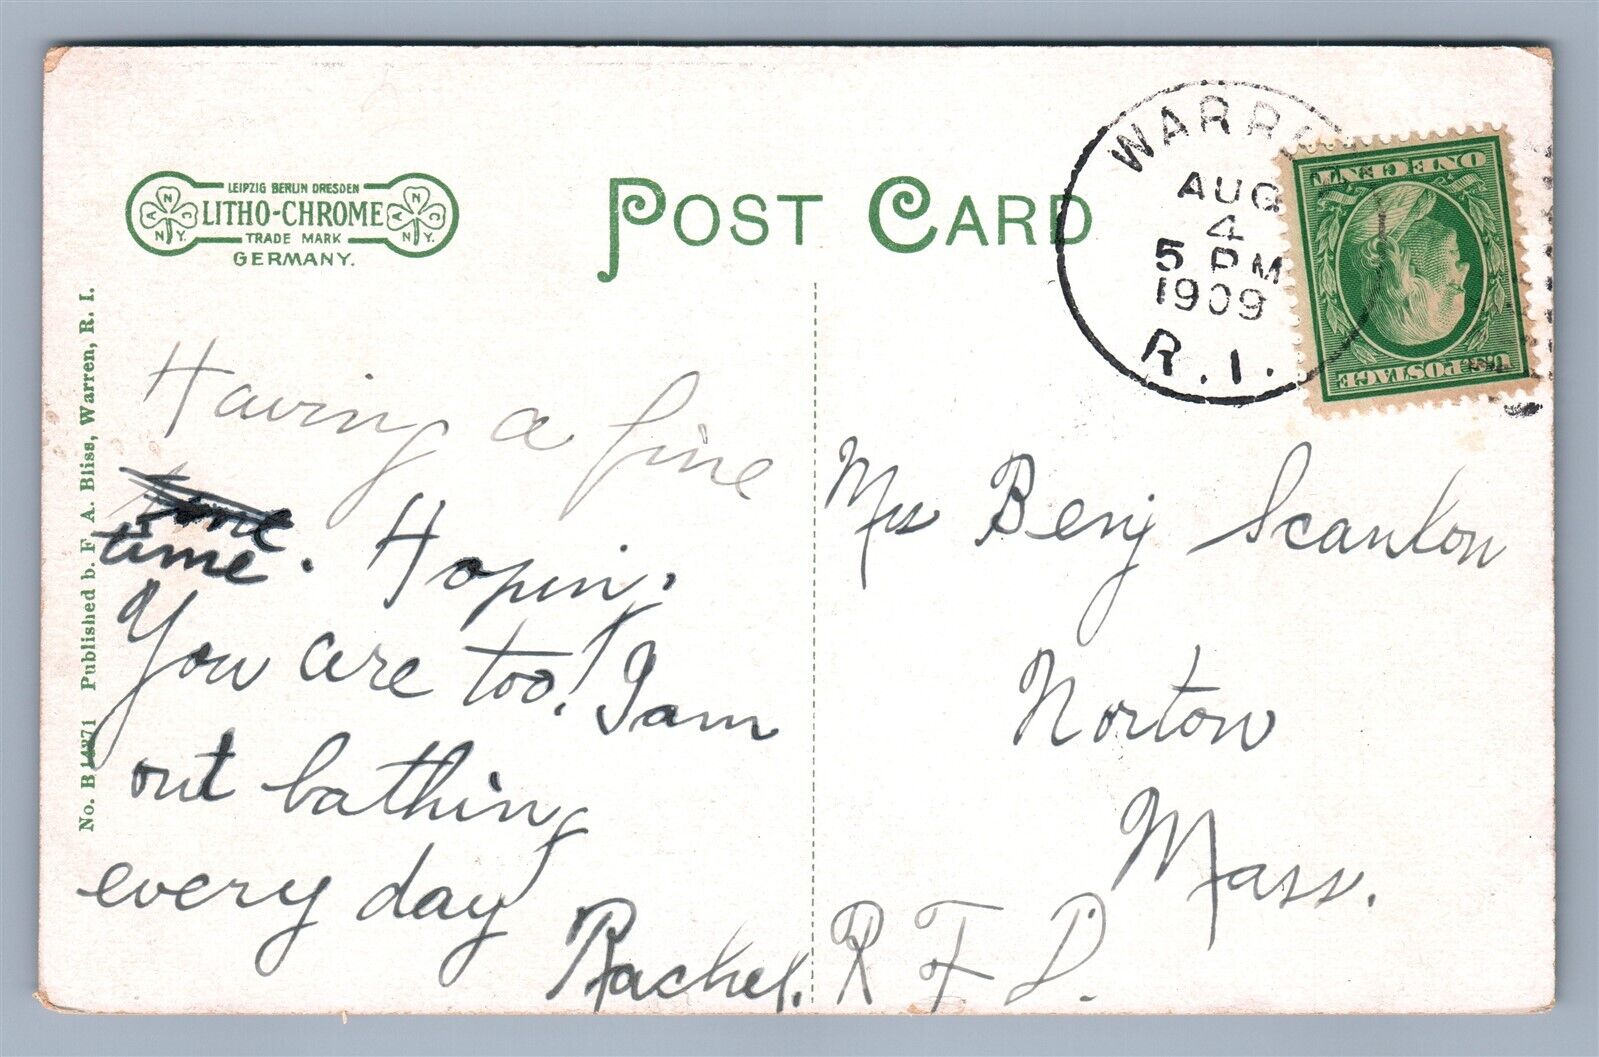 LEIPZIG BERLIN DRESDEN
LITHO-CHROME
TRADE MARK
GERMANY.
A N C
N.Y.
A N C
N.Y.
POST CARD
WARREN
AUG
4
5 PM
1909
R.I.
ONE CENT
U.S. POSTAGE
No. B14271 Published b. F. A. Bliss, Warren, R. I.
Having a fine
time. Hoping
You are too! I am
out bathing
every day
Rachel.
Benj Scanlon
Norton
Mass.
R F D.